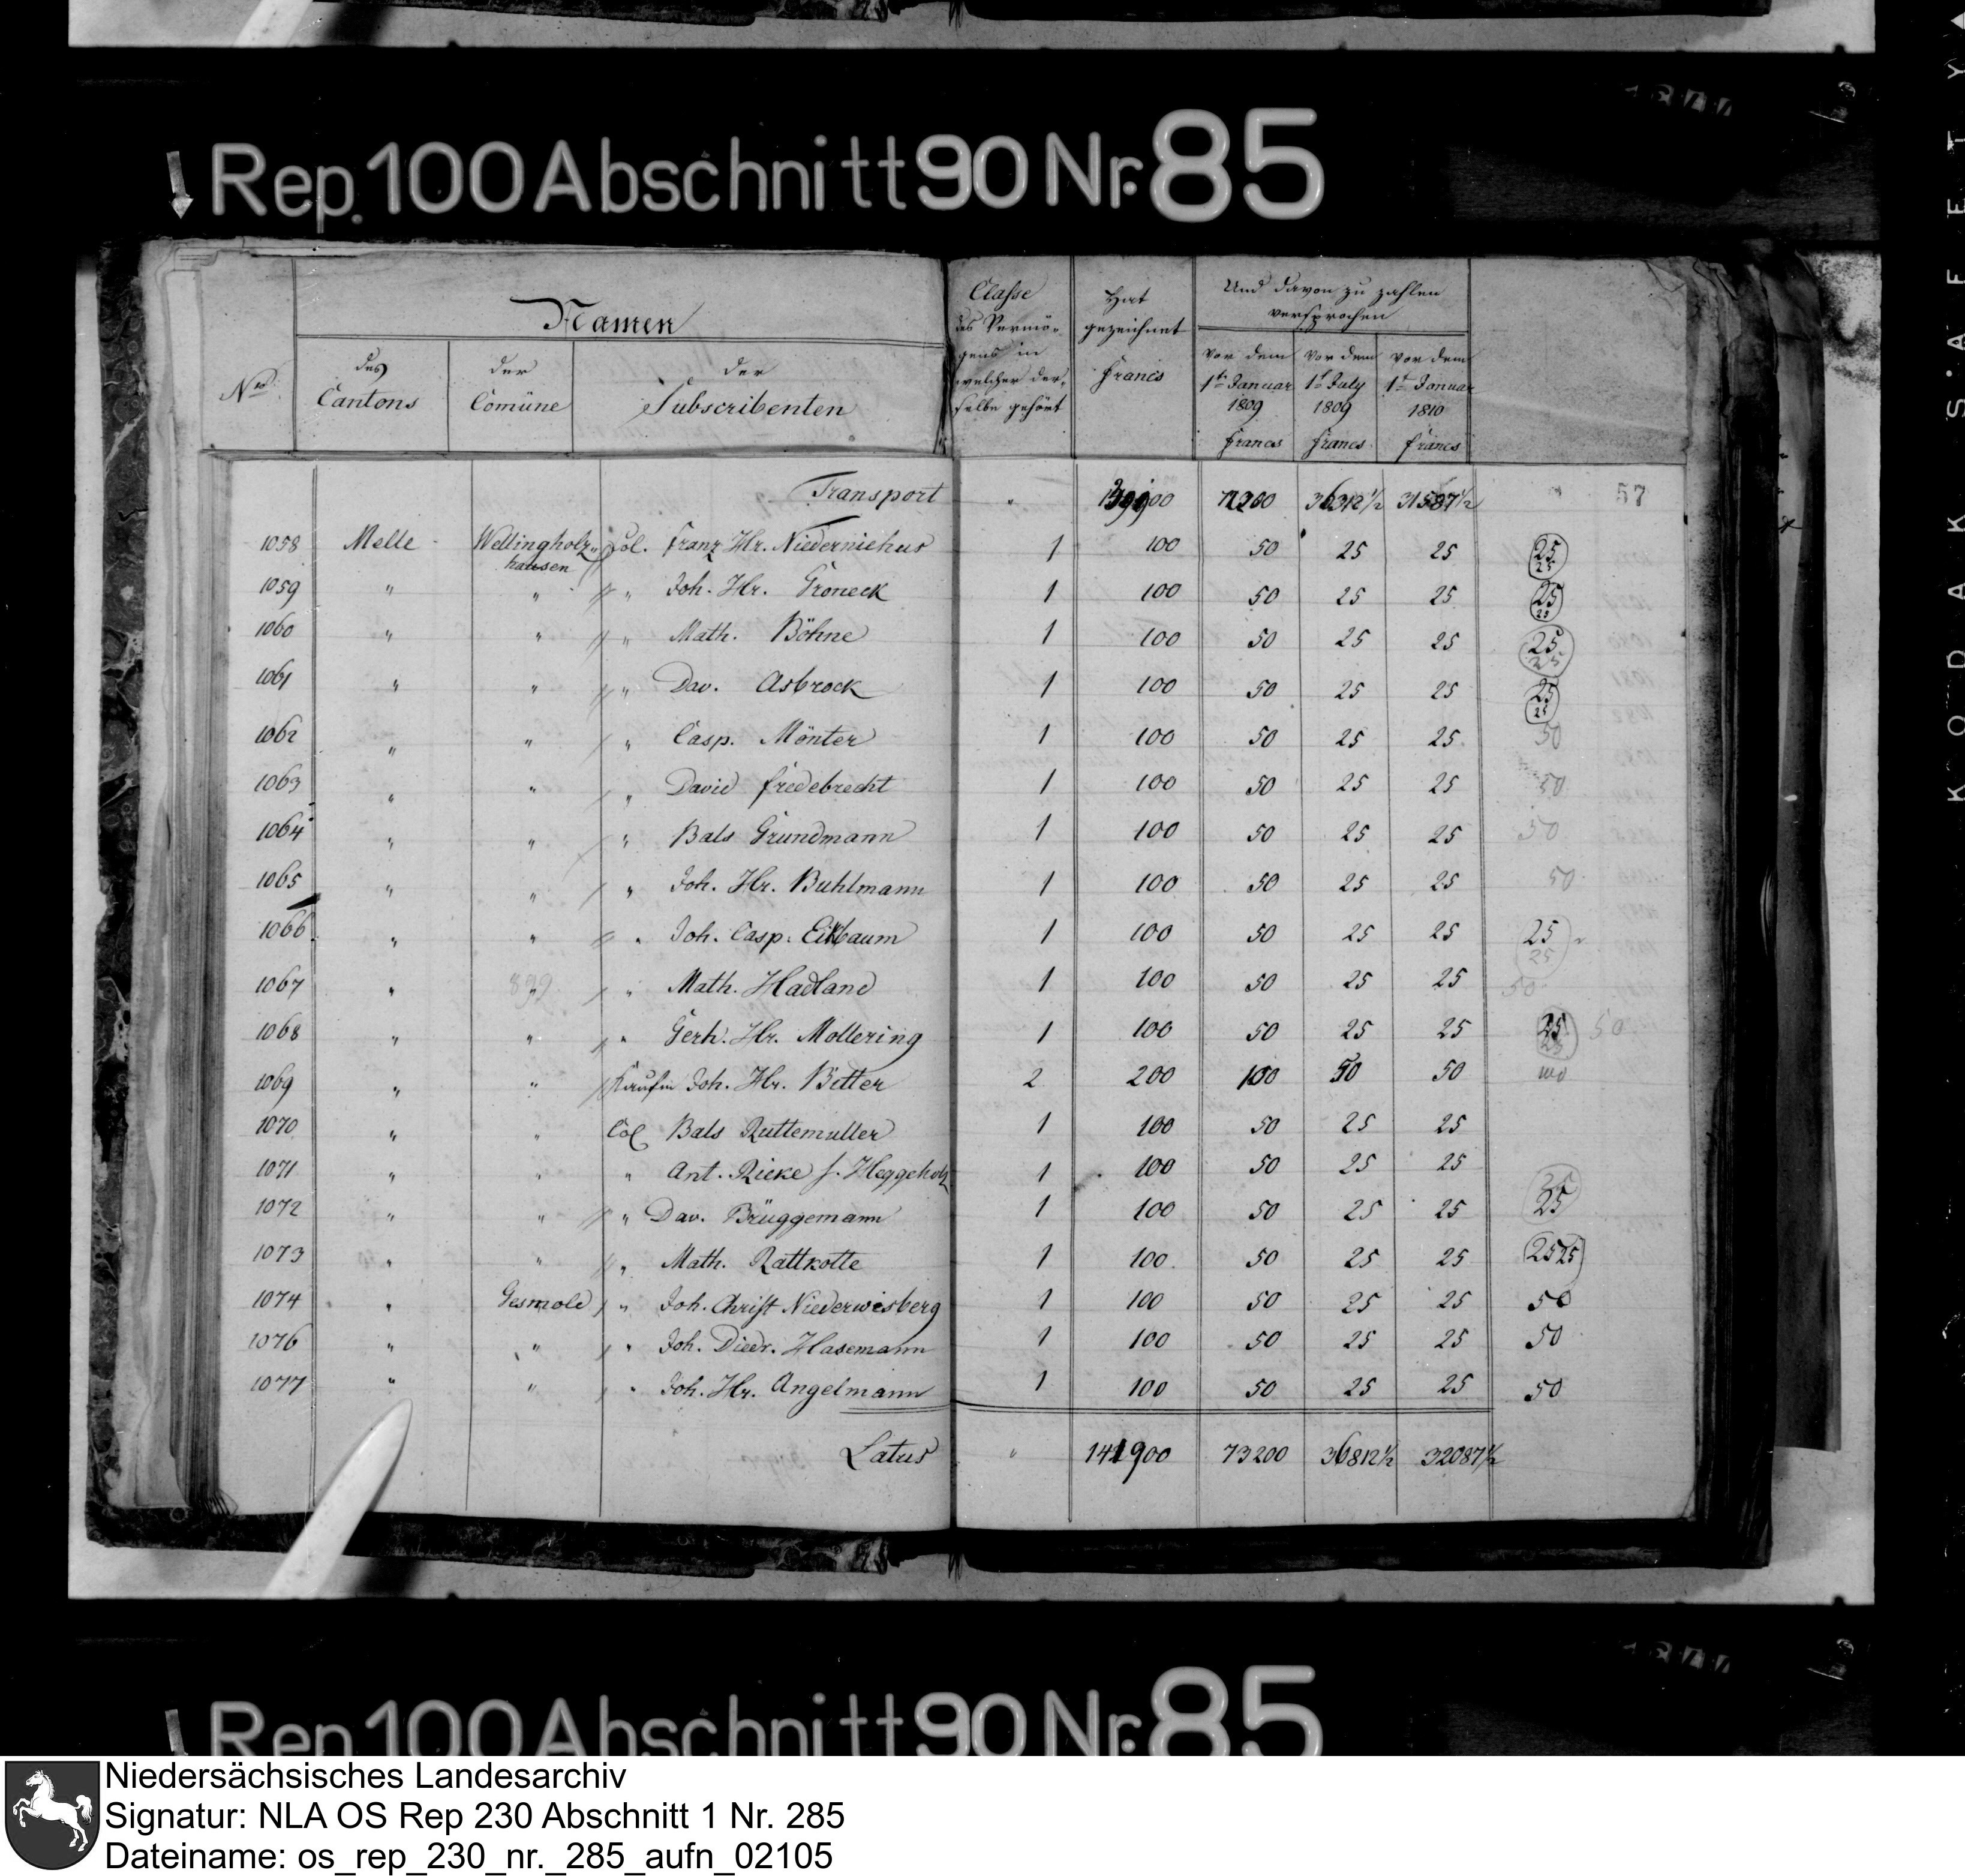 Rep. 100 Abschnitt 90 Nr. 85
Namen
Nro.
des Cantons
der Comüne
der Subscribenten
Classe des Vermö-
gens in
welcher der-
selbe gehört
Hat gezeichnet
Francs
Und davon zu zahlen
versprochen
vor dem 1ten Januar 1809 Francs
vor dem 1t July 1809 Francs
vor dem 1t Januar 1810 Francs
Transport " 71200 36312½ 31587½ 57
1058 Melle Wellingholz-hausen Col. Franz Hr. Niederniehus 1 100 50 25 25 25 25
1059 " " " Joh. Hr. Groneck 1 100 50 25 25 25 25
1060 " " " Math. Böhne 1 100 50 25 25 25 25
1061 " " " Dav. Asbrock 1 100 50 25 25 25 25
1062 " " " Casp. Mönter 1 100 50 25 25 50
1063 " " " David Fredebrecht 1 100 50 25 25 50
1064 " " " Bals Grundmann 1 100 50 25 25 50
1065 " " " Joh. Hr. Buhlmann 1 100 50 25 25 50
1066 " " " Joh. Casp. Eikbaum 1 100 50 25 25 25 25
1067 " " " Math. Hadland 1 100 50 25 25 50
1068 " " " Gerh. Hr. Mollering 1 100 50 25 25 25 25 50
1069 " " Kaufm Joh. Hr. Bitter 2 200 100 50 50 100
1070 " " Col Bals Ruttemuller 1 100 50 25 25
1071 " " " Ant. Rieke s. Heggeholz 1 100 50 25 25
1072 " " " Dav. Brüggemann 1 100 50 25 25 25 25
1073 " " " Math. Rattkotte 1 100 50 25 25 25 25
1074 " Gesmold " Joh. Christ Niederwisberg 1 100 50 25 25 50
1076 " " " Joh. Diedr. Hasemann 1 100 50 25 25 50
1077 " " " Joh. Hr. Angelmann 1 100 50 25 25 50
Latus " 141900 73200 36812½ 32087½
Rep 100 Abschnitt 90 Nr. 85
KODAK SAFETY
Niedersächsisches Landesarchiv
Signatur: NLA OS Rep 230 Abschnitt 1 Nr. 285
Dateiname: os_rep_230_nr._285_aufn_02105